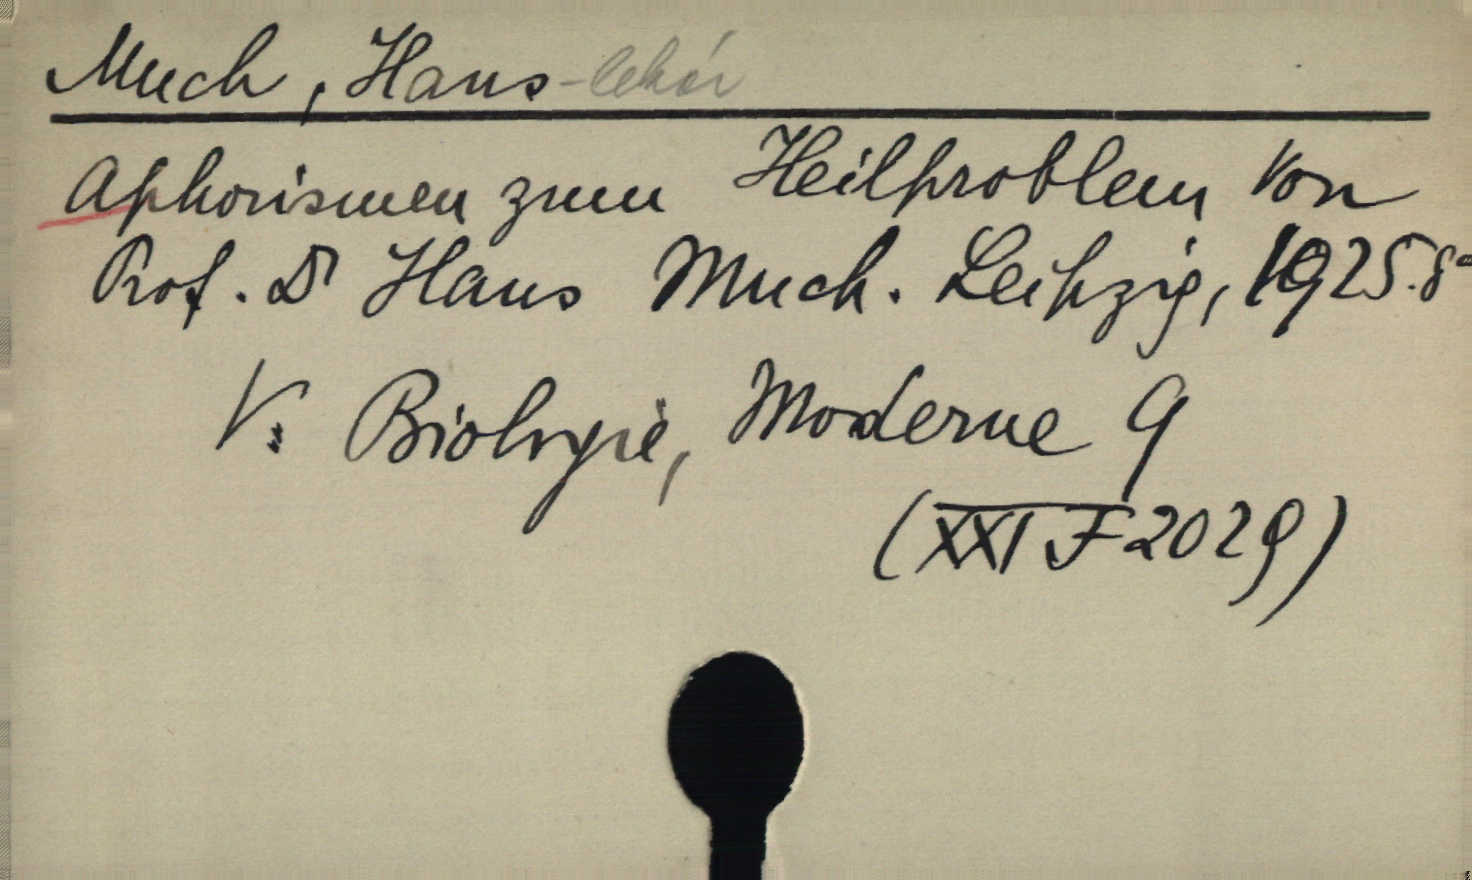 Much, Hans - lekár
Aphorismen zum Heilproblem von
Prof. Dr Hans Much. Leipzig, 1925. 8°
V: Biologie, Moderne 9
(XXI F 2029)